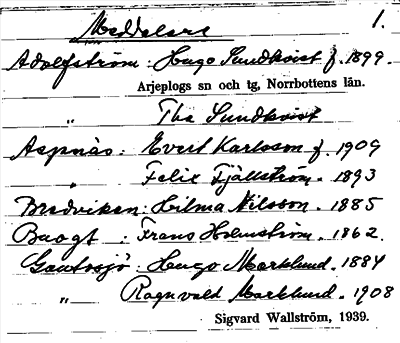 Meddelare 1.
Adolfström: Hugo Sundkvist f. 1899.
Arjeplogs sn och tg, Norrbottens län.
" Tha Sundkvist
Aspnäs: Evert Karlsson f. 1909
" Felix Fjällström. 1893
Bredviken: Hilma Nilsson. 1885
: Frans Holmström. 1862.
Gautosjö: Hugo Marklund. 1884
" Ragnvald Marklund. 1908
Sigvard Wallström, 1939.